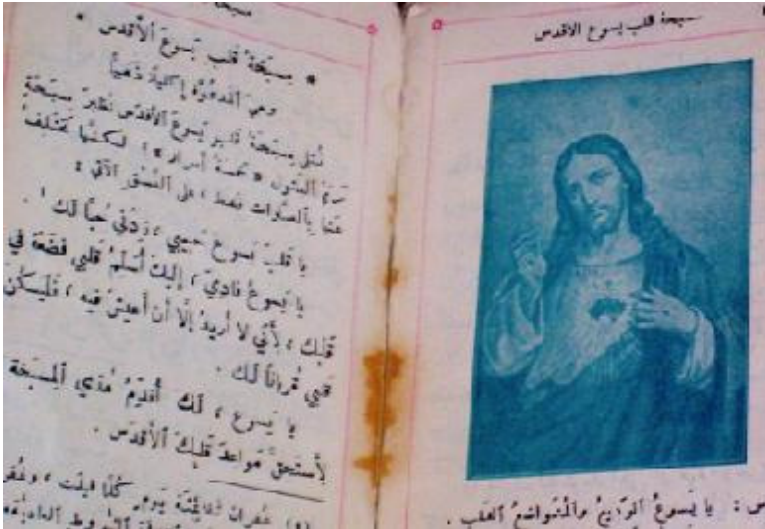 مسبحة
* مسبحة قلب يسوع الأقدس *
وهي المدعوة إكليلاً ذهبياً
تُتلى مسبحة قلب يسوع الأقدس نظير مسبحة
مريم البتول « خمسة أسرار » ؛ لكنها تختلف
عنها بالصلوات فقط ، على النسق الآتي :
يا قلب يسوع حبيبي ، زدني حباً لك .
يا يسوع فاديّ ، إليك أسلم قلبي فضعه في
قلبك ، لأني لا أريد إلا أن أعيش فيه ، فليكن
قلبي قرباناً لك .
يا يسوع ، لك أقدّم هذي المسبحة
لأستحقّ مواعد قلبك الأقدس .
غفران
كلما تليت
مسبحة قلب يسوع الاقدس
س : يا يسوع الوديع والمتواضع القلب .